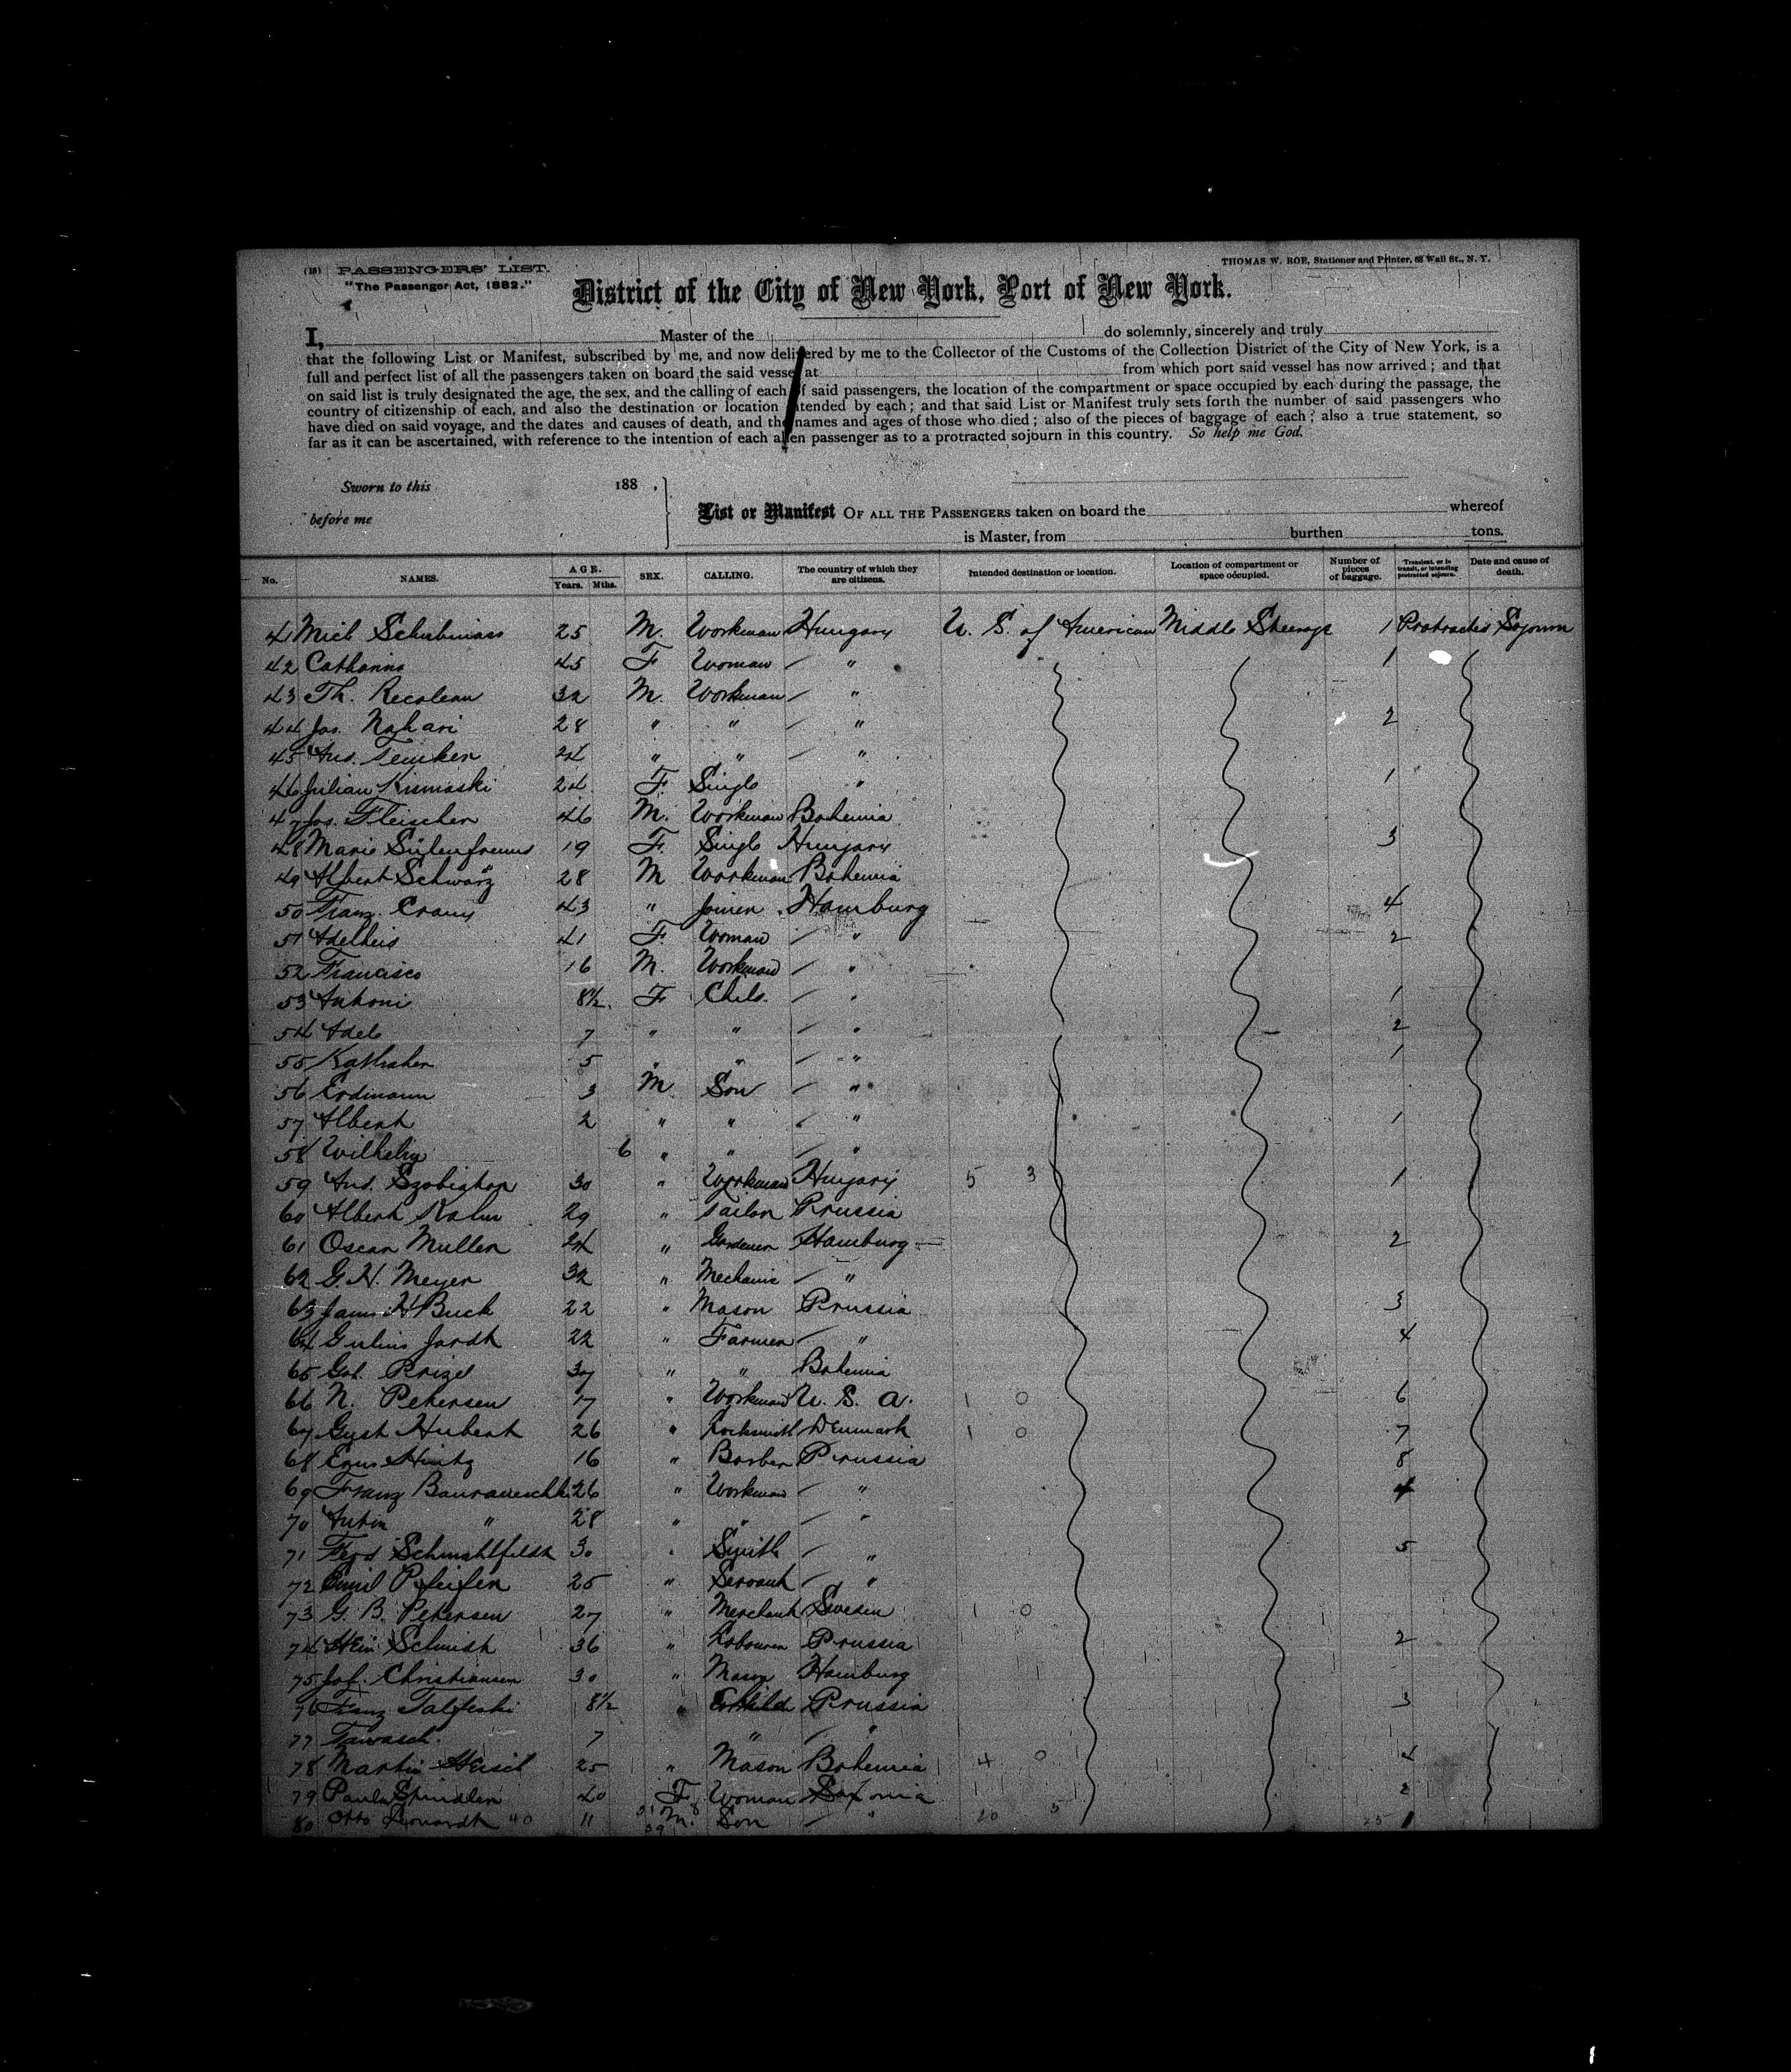 (18) PASSENGERS' LIST.
THOMAS W. ROE, Stationer and Printer, 63 Wall St., N. Y.
"The Passenger Act, 1882."
District of the City of New York, Port of New York.
I, Master of the do solemnly, sincerely and truly
that the following List or Manifest, subscribed by me, and now delivered by me to the Collector of the Customs of the Collection District of the City of New York, is a
full and perfect list of all the passengers taken on board the said vessel at from which port said vessel has now arrived; and that
on said list is truly designated the age, the sex, and the calling of each of said passengers, the location of the compartment or space occupied by each during the passage, the
country of citizenship of each, and also the destination or location intended by each; and that said List or Manifest truly sets forth the number of said passengers who
have died on said voyage, and the dates and causes of death, and the names and ages of those who died; also of the pieces of baggage of each; also a true statement, so
far as it can be ascertained, with reference to the intention of each alien passenger as to a protracted sojourn in this country. So help me God.
Sworn to this 188 ,
before me
List or Manifest OF ALL THE PASSENGERS taken on board the whereof
is Master, from burthen tons.
No. NAMES. AGE. Years. Mths. SEX. CALLING. The country of which they are citizens. Intended destination or location. Location of compartment or space occupied. Number of pieces of baggage. Transient, or in transit, or intending protracted sojourn. Date and cause of death.
41 Mich 25 M. Workman Hungary U. S. of American Middle Steerage 1 Protracted Sojourn
42 Catharina 45 F Woman " 1
43 Th. 32 M. Workman "
44 Jos. 28 " " " 2
45 And. 24 " " "
46 Julian 24 F. Single " 1
47 Jos. Fleischer 46 M. Workman Bohemia
48 Marie 19 F. Single Hungary 3
49 Albert Schwarz 28 M Workman Bohemia
50 Franz 43 " Joiner Hamburg 4
51 Adelheid 41 F. Woman " 2
52 Francisco 16 M. Workman "
53 Antoni 8½ F Child " 1
54 Adele 7 " " " 2
55 5 " " " 1
56 Erdmann 3 M Son "
57 Albert 2 " " " 1
58 Wilhelm 6 " " "
59 And. 30 " Workman Hungary 5 3 1
60 Albert Kalm 29 " Tailor Prussia
61 Oscar Muller 24 " Gardener Hamburg 2
62 G. H. Meyer 32 " Mechanic "
63 H Buck 22 " Mason Prussia 3
64 22 " Farmer " 4
65 37 " " Bohemia
66 N. Petersen 17 " Workman U. S. A. 1 0 6
67 Hubert 26 " Locksmith Denmark 1 0 7
68 Hintz 16 " Barber Prussia 8
69 Franz 26 " Workman " 4
70 " 28 " " "
71 Ferd 30 " Smith " 5
72 Emil Pfeifer 25 " Servant "
73 G. B. Petersen 27 " Merchant Sweden 1 0
74 Schmidt 36 " Labourer Prussia 2
75 Christiansen 30 " Mason Hamburg
76 Franz 8½ " Prussia 3
77 7 " "
78 Martin 25 " Mason Bohemia 4 0 4
79 Paula Spindler 40 F. Woman Saxonia 2
80 Otto 40 11 M. Son " 20 5 25 1